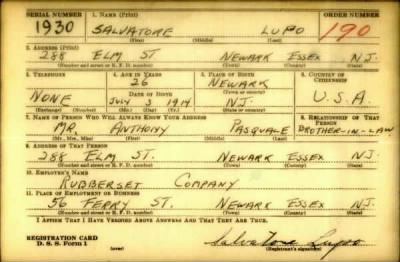 SERIAL NUMBER 1. NAME (Print) ORDER NUMBER
1930 SALVATORE LUPO 190
(First) (Middle) (Last)
2. ADDRESS (Print)
288 ELM ST. NEWARK ESSEX N.J.
(Number and street or R. F. D. number) (Town) (County) (State)
3. TELEPHONE 4. AGE IN YEARS 5. PLACE OF BIRTH 6. COUNTRY OF CITIZENSHIP
26 NEWARK
DATE OF BIRTH (Town or county)
NONE JULY 3 1914 N.J. U.S.A.
(Exchange) (Number) (Mo.) (Day) (Yr.) (State or country)
7. NAME OF PERSON WHO WILL ALWAYS KNOW YOUR ADDRESS 8. RELATIONSHIP OF THAT PERSON
MR. ANTHONY PASQUALE BROTHER-IN-LAW
(Mr., Mrs., Miss) (First) (Middle) (Last)
9. ADDRESS OF THAT PERSON
288 ELM ST. NEWARK ESSEX N.J.
(Number and street or R. F. D. number) (Town) (County) (State)
10. EMPLOYER'S NAME
RUBBERSET COMPANY
11. PLACE OF EMPLOYMENT OR BUSINESS
56 FERRY ST. NEWARK ESSEX N.J.
(Number and street or R. F. D. number) (Town) (County) (State)
I AFFIRM THAT I HAVE VERIFIED ABOVE ANSWERS AND THAT THEY ARE TRUE.
REGISTRATION CARD
D. S. S. Form 1 (over) Salvatore Lupo
(Registrant's signature)